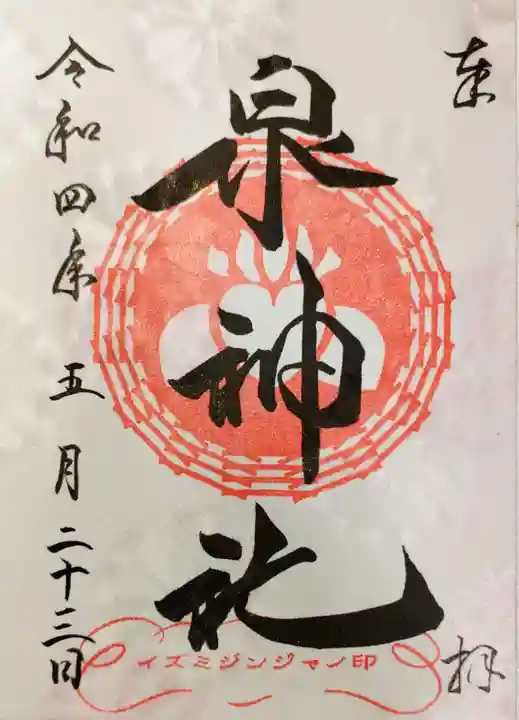 奉
拝
泉神社
令和四年五月二十三日
イズミジンジャノ印